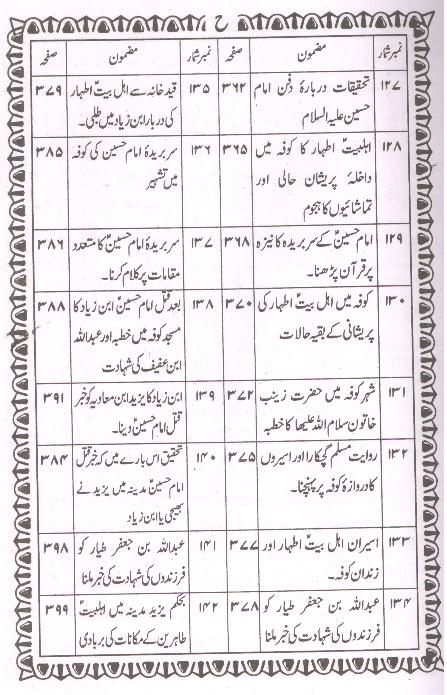 ح
نمبر شمار مضمون صفحہ
۱۲۷ تحقیقات دربارۂ دفن امام ۳۶۲
حسین علیہ السلام
۱۲۸ اہلبیتؑ اطہار کا کوفہ میں ۳۶۵
داخلۂ پریشان حالی اور
تماشائیوں کا ہجوم
۱۲۹ امام حسینؑ کے سر بریدہ کا نیزہ ۳۶۸
پر قرآن پڑھنا۔
۱۳۰ کوفہ میں اہل بیتؑ اطہار کی ۳۷۰
پریشانی کے بقیہ حالات
۱۳۱ شہر کوفہ میں حضرت زینب ۳۷۲
خاتون سلام اللہ علیھا کا خطبہ
۱۳۲ روایت مسلم گچکار اور اسیروں ۳۷۵
کا دروازۂ کوفہ پر پہنچنا۔
۱۳۳ اسیران اہل بیتؑ اطہار اور ۳۷۷
زندان کوفہ۔
۱۳۴ عبداللہ بن جعفر طیار کو ۳۷۸
فرزندوں کی شہادت کی خبر ملنا
نمبر شمار مضمون صفحہ
۱۳۵ قید خانہ سے اہل بیتؑ اطہار ۳۷۹
کی دربار ابن زیاد میں طلبی۔
۱۳۶ سر بریدۂ امام حسین کی کوفہ ۳۸۵
میں تشہیر
۱۳۷ سر بریدۂ امام حسینؑ کا متعدد ۳۸۶
مقامات پر کلام کرنا۔
۱۳۸ بعد قتل امام حسینؑ ابن زیاد کا ۳۸۸
مسجد کوفہ میں خطبہ اور عبداللہ
ابن عفیفؑ کی شہادت
۱۳۹ ابن زیاد کا یزید ابن معاویہ کو خبر ۳۹۱
قتل امام حسینؑ دینا۔
۱۴۰ تحقیق اس بارے میں کہ خبر قتل ۳۸۴
امام حسینؑ مدینہ میں یزید نے
بھیجی یا ابن زیاد
۱۴۱ عبداللہ بن جعفر طیار کو ۳۹۸
فرزندوں کی شہادت کی خبر ملنا
۱۴۲ بحکم یزید مدینہ میں اہلبیتؑ ۳۹۹
طاہرین کے مکانات کی بربادی